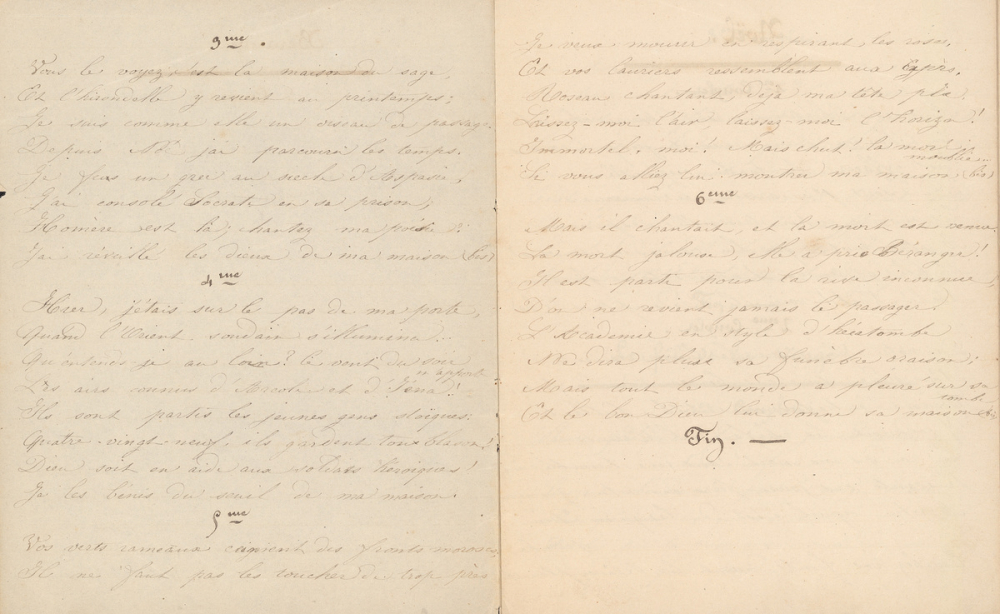 3me.
Vous le voyez, c'est la maison du sage,
Et l'hirondelle y revient au printemps;
Je suis comme elle un oiseau de passage
Depuis Noé j'ai parcouru les temps.
Je fus un grec au siècle d'Aspasie,
J'ai consolé Socrate en sa prison,
Homère est là; chantez ma poésie:
J'ai réveillé les dieux de ma maison (bis)
4me
Hier, j'étais sur le pas de ma porte,
Quand l'Orient soudain s'illumina.
Qu'entends-je au loin? le vent du soir
m'apporte
Les airs connus d'Arcole et d'Iéna!
Ils sont partis les jeunes gens stoïques.
Quatre-vingt-neuf, ils gardent ton blason!
Dieu soit en aide aux soldats héroïques!
Je les bénis du seuil de ma maison.
5me
Vos verts rameaux ceignent des fronts moroses,
Il ne faut pas les toucher de trop près
Je veux mourir en respirant les roses,
Et vos lauriers ressemblent aux cyprès.
Roseau chantant, déjà ma tête plie
Laissez-moi l'air, laissez-moi l'horizon!
Immortel, moi! Mais chut! la mort
m'oublie
Si vous alliez lui montrer ma maison (bis)
6eme
Mais il chantait, et la mort est venue,
La mort jalouse, elle a pris Béranger!
Il est parti pour la rive inconnue,
D'où ne revient jamais le passager
L'Académie en style d'hécatombe
Ne dira plus sa funèbre oraison;
Mais tout le monde a pleuré sur sa
tombe
Et le bon Dieu lui donne sa maison (bis)
Fin. —